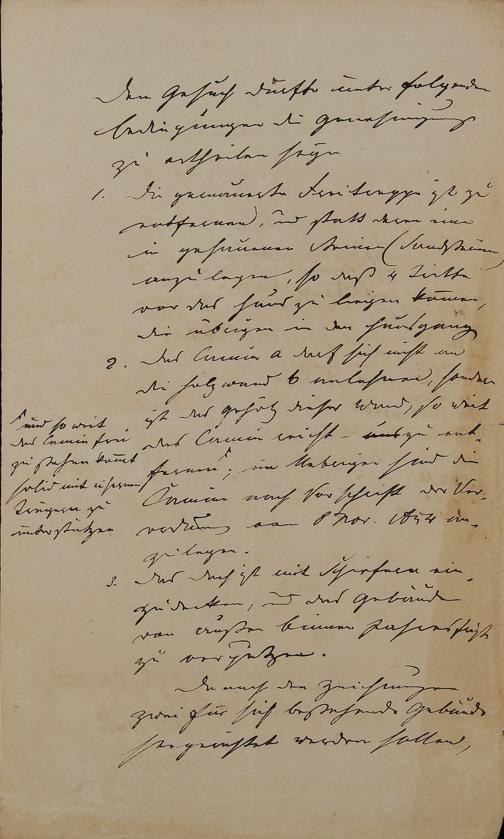 Dem Gesuch dürfte unter folgenden
Bedingungen die Genehmigung
zu ertheilen seyn
1. Die gemauerte Freitreppe ist zu
entfernen, und statt deren eine
in gehauenen Steinen (Sandsteinen
anzulegen, so daß 4 Tritte
vor das Haus zu liegen kommen,
die übrigen in den Hausgang
2. Das Camin a darf sich nicht an
die Holzwand b anlehnen, sondern
ist das Gehölz dieser Wand, so weit
das Camin reicht – auszu ent-
fernen; im Uebrigen sind die
Camine nach Vorschrift der Ver-
ordnung vom 8 Nov. an-
zulegen.
und so weit
das Camin frei
zu stehen kommt
solid mit eisernen
Trägern zu
unterstützen
3. Das Dach ist mit Schiefern ein-
zudecken, und das Gebäude
von außen binnen Jahresfrist
zu verputzen.
Da nach den Zeichnungen
zwei für sich bestehende Gebäude
hergerichtet werden sollen,